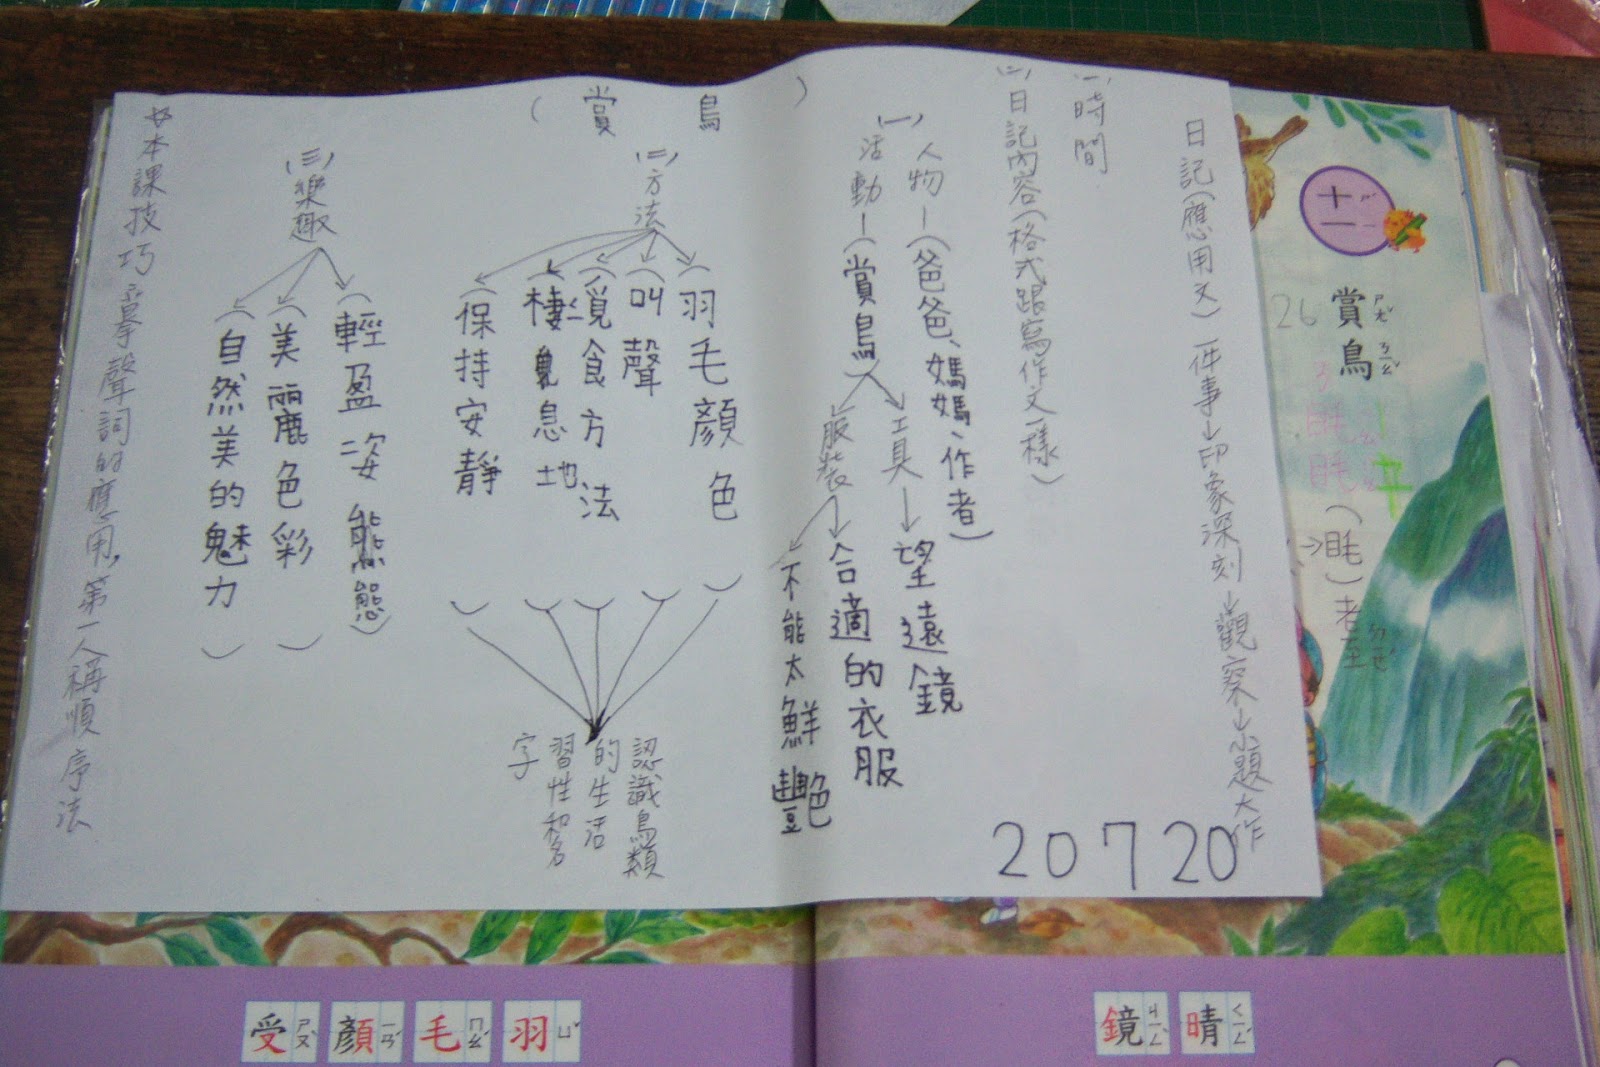 十一
賞鳥
26
(眊)老
日記(應用文)一件事→印象深刻→觀察→小題大作
(一)時間
(二)日記內容(格式跟寫作文一樣)
(賞鳥)
(一)人物—(爸爸、媽媽、作者)
活動—(賞鳥)
工具→望遠鏡
服裝→合適的衣服
不能太鮮豔
(二)方法
(羽毛顏色)
(叫聲)
(覓食方法)
(棲息地)
(保持安靜)
認識鳥類
的生活
習性和名
字
(三)樂趣
(輕盈姿態)
(美麗色彩)
(自然美的魅力)
本課技巧 摹聲詞的應用,第一人稱順序法
20720
晴ㄑㄧㄥˊ
鏡ㄐㄧㄥˋ
羽ㄩˇ
毛ㄇㄠˊ
顏ㄧㄢˊ
受ㄕㄡˋ